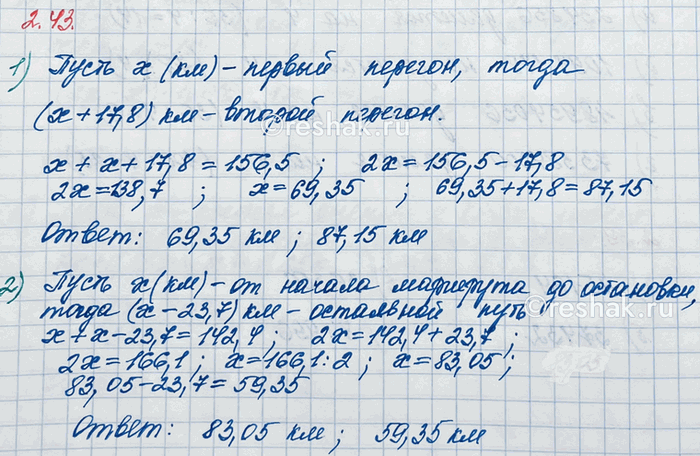 2.43.
1) Пусть x (км) – первый перегон, тогда
(x + 17,8) км – второй перегон.
©reshak.ru
x + x + 17,8 = 156,5 ; 2x = 156,5 – 17,8
2x = 138,7 ; x = 69,35 ; 69,35 + 17,8 = 87,15
Ответ: 69,35 км ; 87,15 км
2) Пусть x (км) – от начала маршрута до остановки,
тогда (x – 23,7) км – остальной путь
©reshak.ru
x + x – 23,7 = 142,4 ; 2x = 142,4 + 23,7 ;
2x = 166,1 ; x = 166,1 : 2 ; x = 83,05 ;
83,05 – 23,7 = 59,35
Ответ: 83,05 км ; 59,35 км